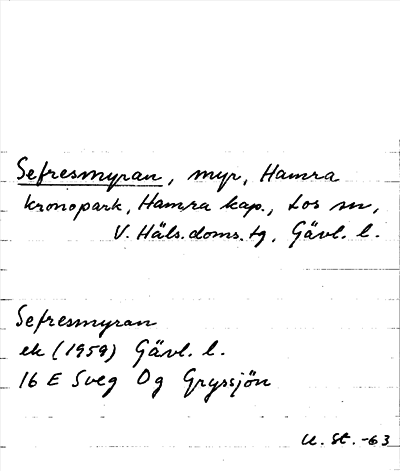 Sefresmyran, myr, Hamra
kronopark, Hamra kap., Los sn,
V. Häls. doms. tg, Gävl. l.
Sefresmyran
ek (1959) Gävl. l.
16 E Sveg 0g Gryssjön
U. St. -63